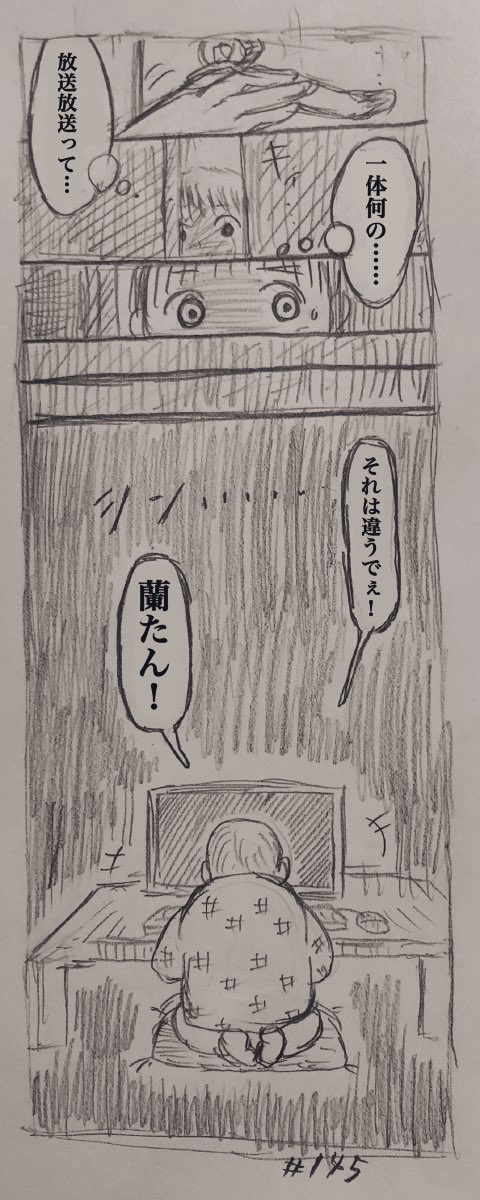 放送放送って…
一体何の……
それは違うでぇ！
蘭たん！
#145